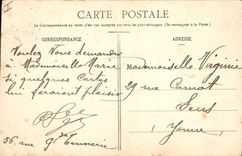 CARTE POSTALE
La Correspondance au verso n'est pas acceptée par tous les pays étrangers (Se renseigner à la Poste)
CORRESPONDANCE
ADRESSE
Voulez Vous demander
à Mademoiselle Marie
si quelques Cartes
lui feraient plaisir
36 rue Gde Tannerie
Mademoiselle Virginie
29 rue Carnot
Sens
Yonne